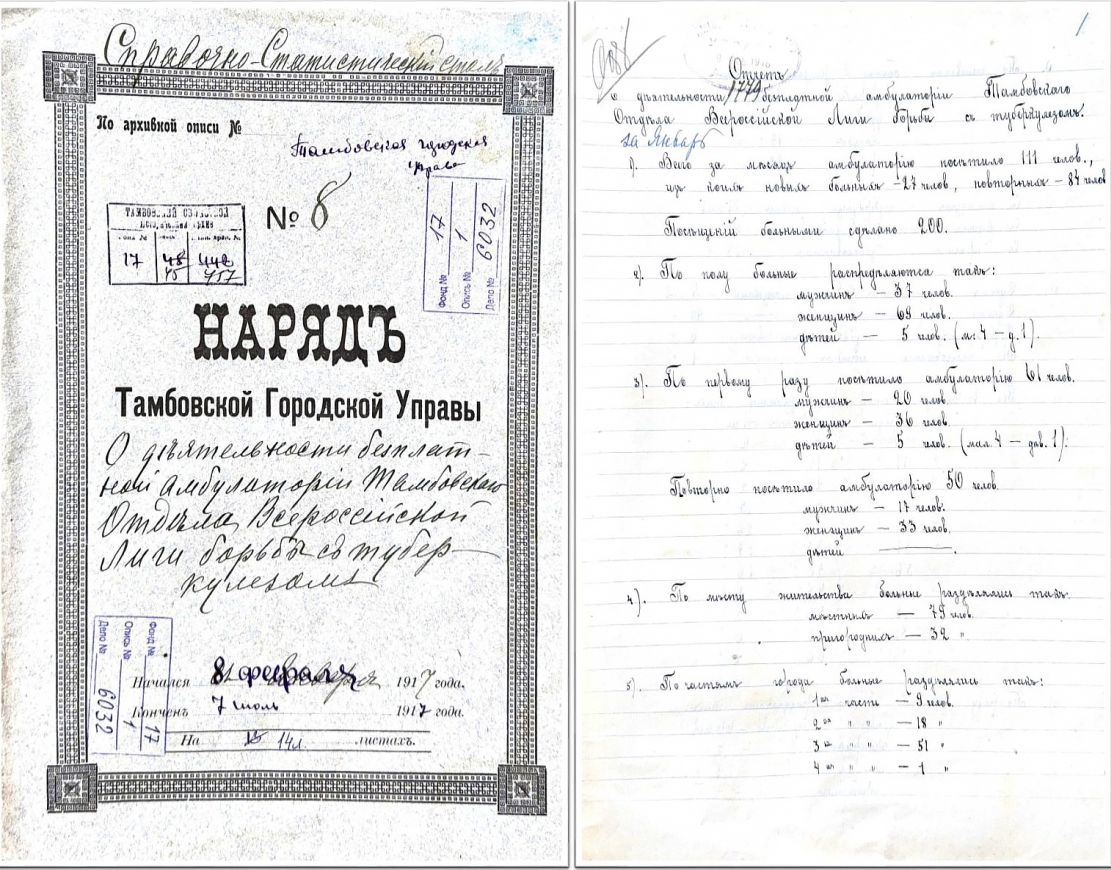 Справочно-Статистическій столъ
По архивной описи №
Тамбовская городская
управа
№ 6
ТАМБОВСКИЙ ОБЛАСТНОЙ
17 45 757
Фонд № 17
Опись № 1
Дело № 6032
НАРЯДЪ
Тамбовской Городской Управы
О дѣятельности безплат-
ной амбулаторіи Тамбовскаго
Отдѣла Всероссійской
Лиги борьбы съ тубер-
кулезомъ
Фонд № 17
Опись № 1
Дело № 6032
Начался 8 февраля 1917 года.
Конченъ 7 июль 1917 года.
На 14 л. листахъ.
1
Отчетъ
о дѣятельности безплатной амбулаторіи Тамбовскаго
1779
Отдѣла Всероссійской Лиги борьбы съ туберкулезомъ.
за Январь
1). Всего за мѣсяцъ амбулаторію посѣтило 111 челов.,
изъ коихъ новыхъ больныхъ – 27 челов., повторныхъ – 84 челов
Посѣщеній больными сдѣлано 200.
2). По полу больные распредѣляются такъ:
мужчинъ – 37 челов.
женщинъ – 69 челов.
дѣтей – 5 челов. (м. 4 – д. 1).
3). По первому разу посѣтило амбулаторію 61 челов.
мужчинъ – 20 челов.
женщинъ – 36 челов.
дѣтей – 5 челов. (мал. 4 – дѣв. 1).
Повторно посѣтило амбулаторію 50 челов.
мужчинъ – 17 челов.
женщинъ – 33 челов.
дѣтей ———.
4). По мѣсту жительства больные раздѣлялись такъ
мѣстныхъ – 79 челов.
пригородныхъ – 32 "
5). По частямъ города больные раздѣлялись такъ:
1ая часть – 9 челов.
2ая " " – 18 "
3я " " – 51 "
4ая " " – 1 "